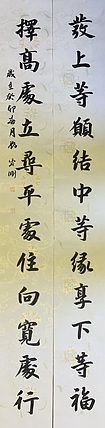 發上等願結中等緣享下等福
擇高處立尋平處住向寬處行
歲在癸卯